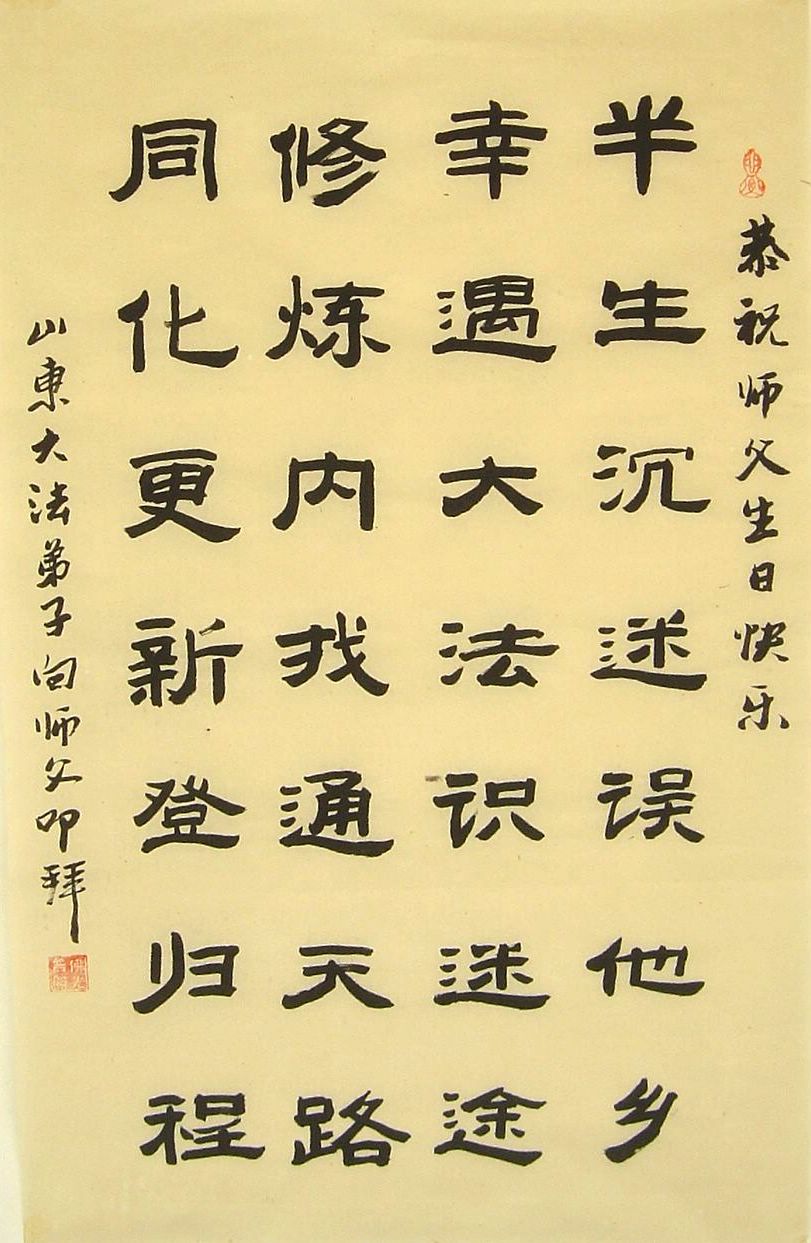 恭祝师父生日快乐
半生沉迷误他乡
幸遇大法识迷途
修炼内找通天路
同化更新登归程
山东大法弟子向师父叩拜